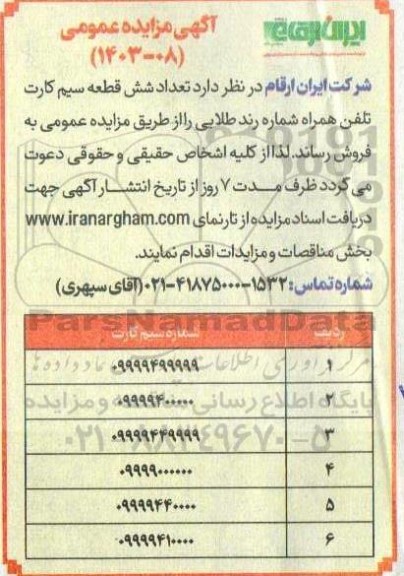 ایران ارقام
آگهی مزایده عمومی
(۱۴۰۳-۰۸)
شرکت ایران ارقام در نظر دارد تعداد شش قطعه سیم کارت
تلفن همراه شماره رند طلایی را از طریق مزایده عمومی به
فروش رساند. لذا از کلیه اشخاص حقیقی و حقوقی دعوت
می گردد ظرف مدت ۷ روز از تاریخ انتشار آگهی جهت
دریافت اسناد مزایده از تارنمای www.iranargham.com
بخش مناقصات و مزایدات اقدام نمایند.
شماره تماس: ۱۵۳۲-۴۱۸۷۵۰۰۰-۰۲۱ (آقای سپهری)
ParsNamadData
ردیف شماره سیم کارت
۱ ۰۹۹۹۹۴۹۹۹۹۹
۲ ۰۹۹۹۹۴۰۰۰۰۰
پایگاه اطلاع رسانی مناقصه و مزایده
۳ ۰۹۹۹۹۴۴۹۹۹۹
۰۲۱-۸۸۳۴۹۶۷۰-۵
۴ ۰۹۹۹۹۰۰۰۰۰۰
۵ ۰۹۹۹۹۴۴۰۰۰۰
۶ ۰۹۹۹۹۴۱۰۰۰۰